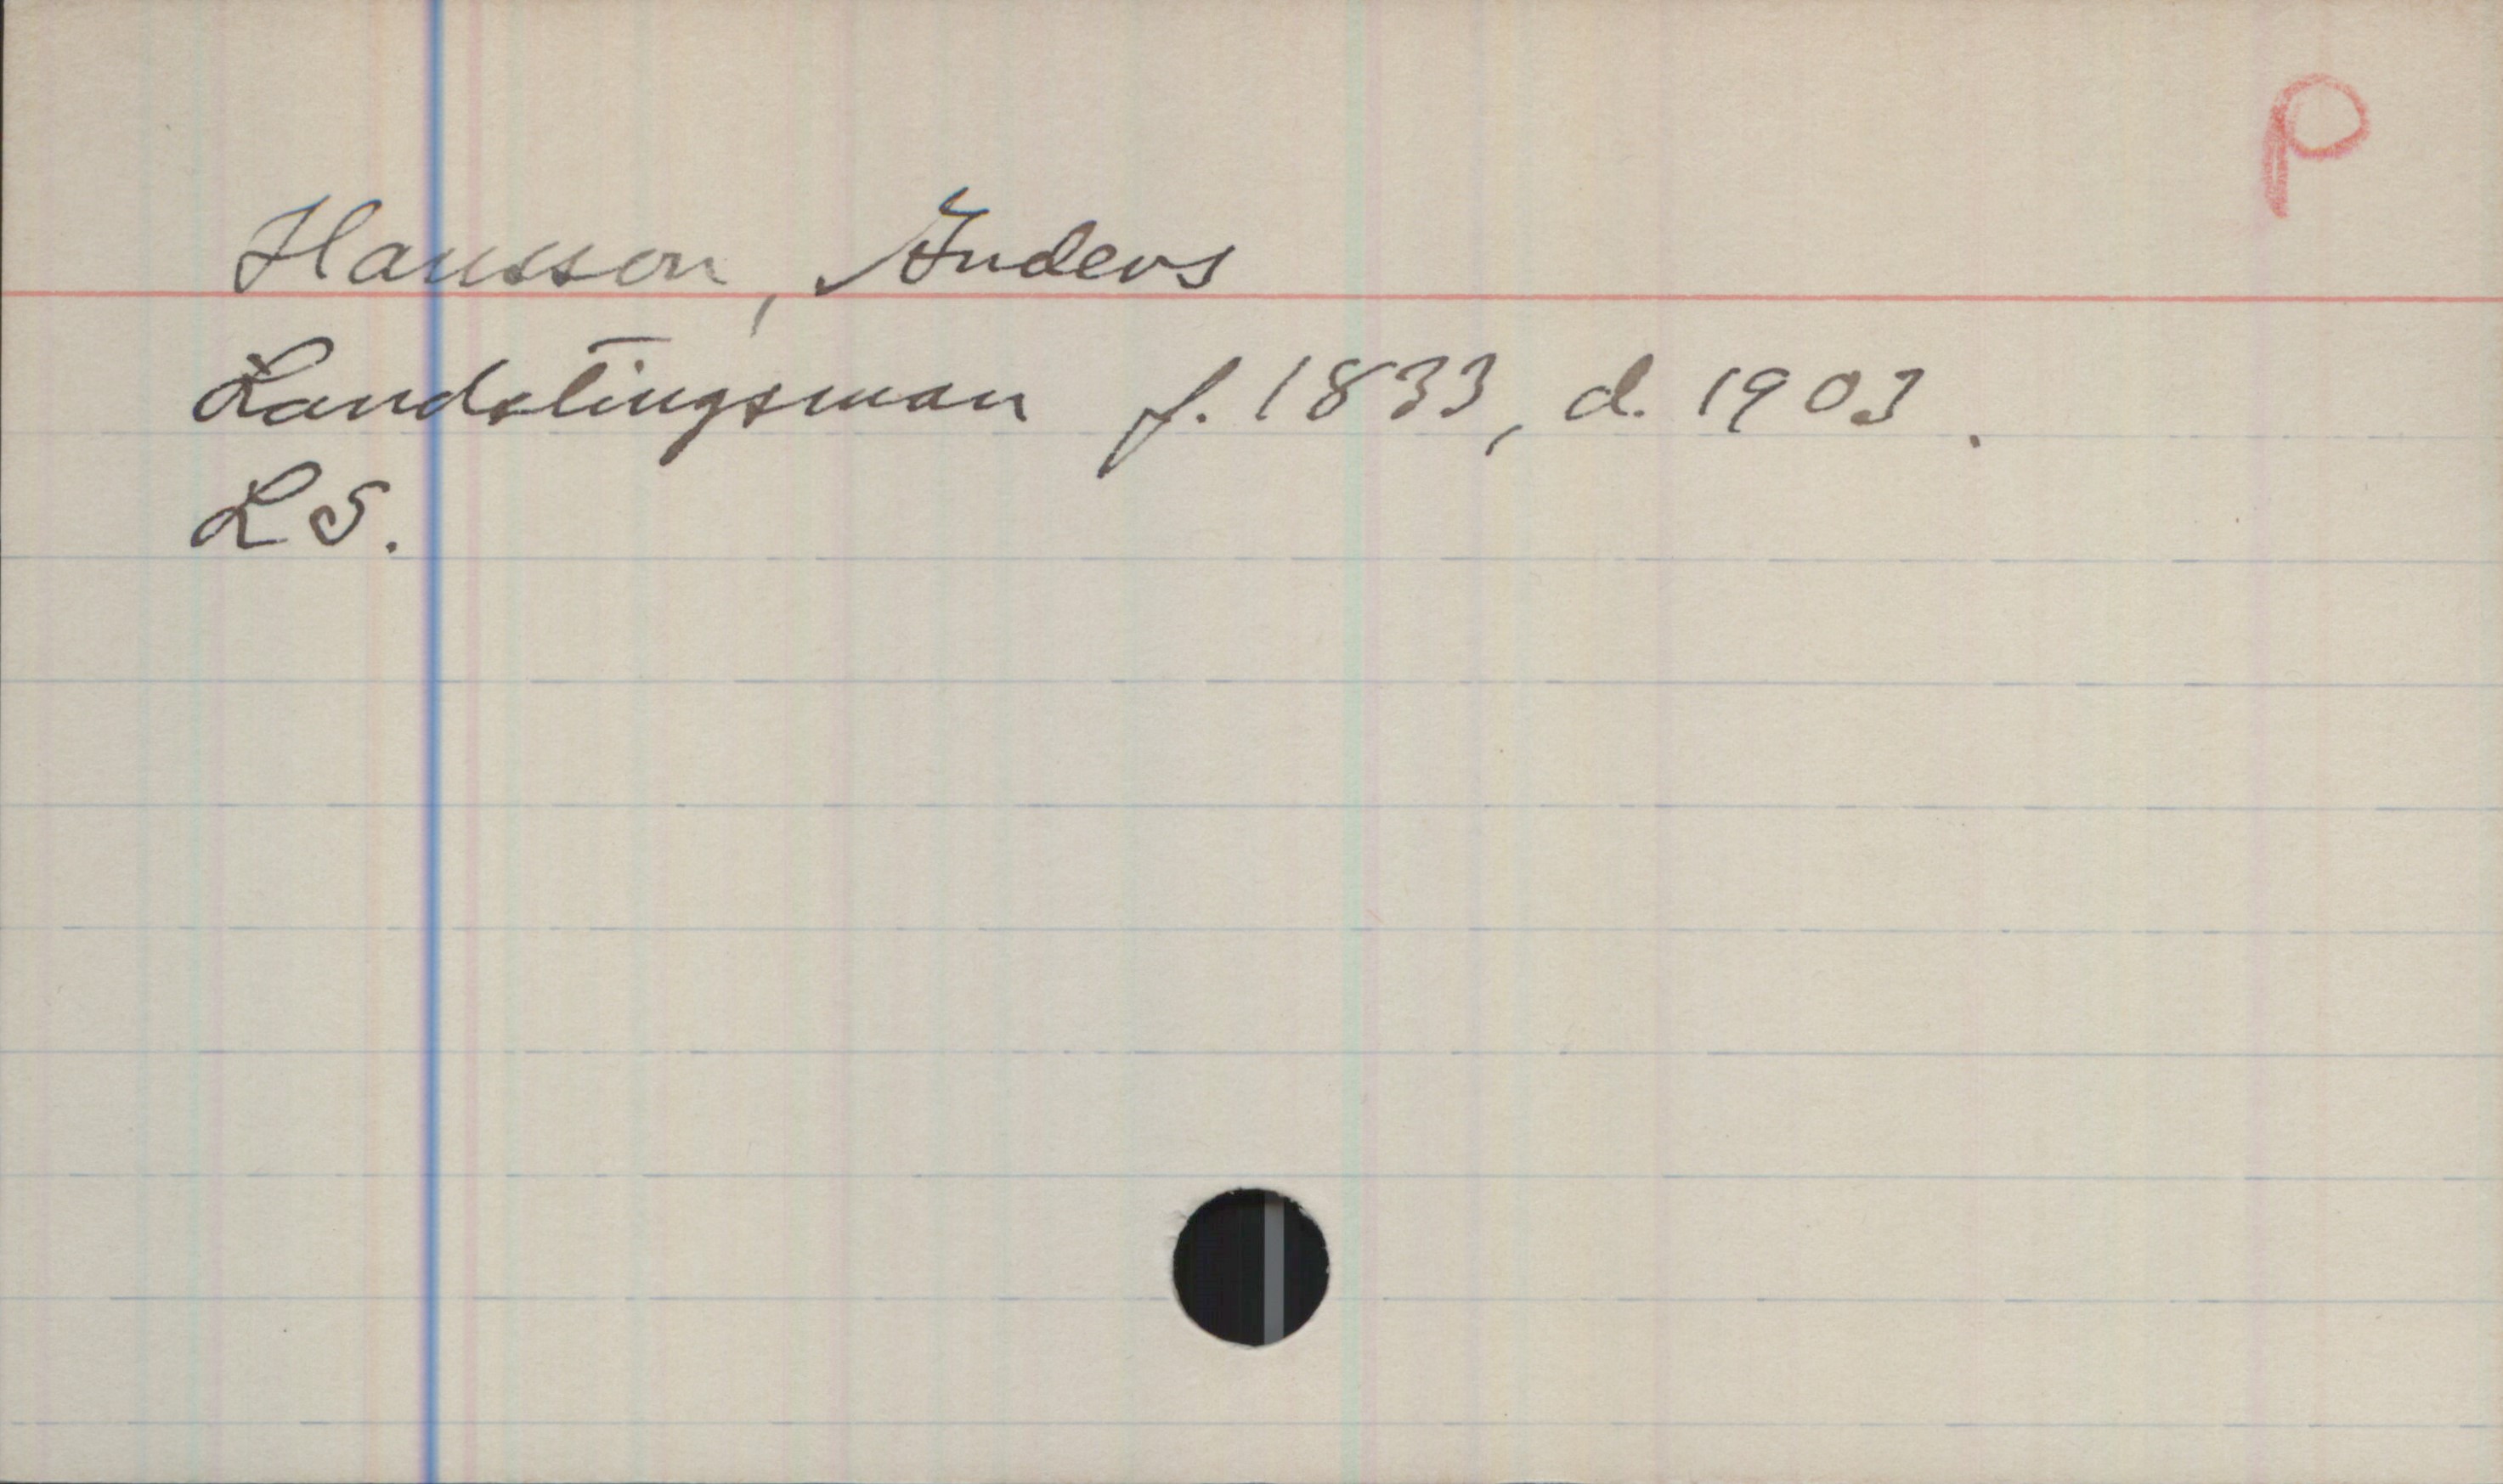 P
Hansson, Anders
Landstingsman f. 1833, d. 1903.
LS.